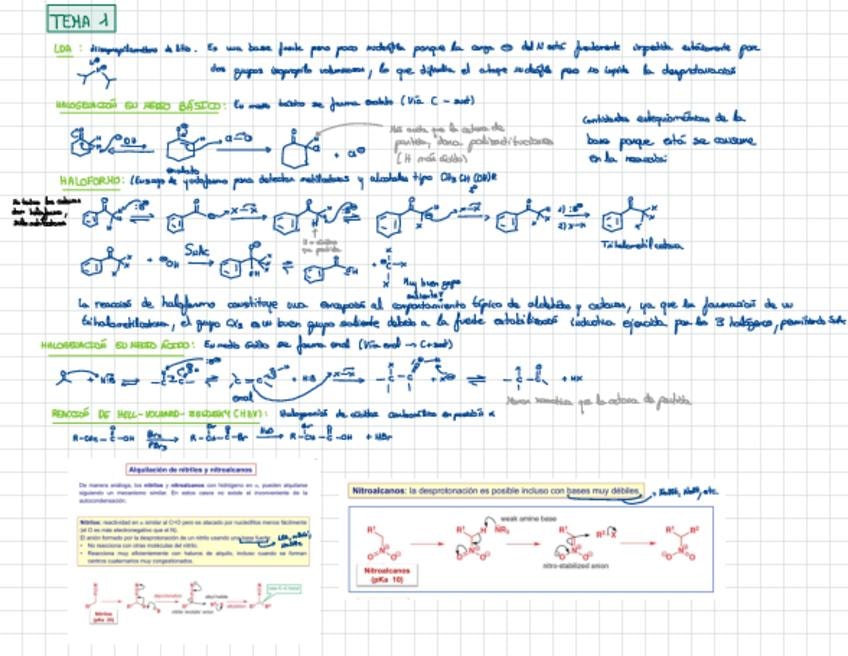 TEMA 1
LDA : diisopropilamiduro de litio. Es una base fuerte pero poco nucleófila porque la carga ⊖ del N está fuertemente impedida estéricamente por
dos grupos isopropilo voluminosos, lo que dificulta el ataque nucleófilo pero no impide la desprotonación
HALOGENACIÓN EN MEDIO BÁSICO: En medio básico se forma enolato (Vía C - nuc)
Cantidades estequiométricas de la
base porque esta se consume
en la reacción
Más ácida que la cetona de
partida, dona polisustituciones
(H más ácido)
enolato
HALOFORMO: (Ensayo de yodoformo para detectar metilcetonas y alcoholes tipo CH3 CH (OH)R
Trihalometilcetona
SNAc
Muy buen grupo
saliente!
La reacción de haloformo constituye una excepción al comportamiento típico de aldehídos y cetonas, ya que la formación de un
trihalometilcetona, el grupo CX3 es un buen grupo saliente debido a la fuerte estabilización inductiva ejercida por los 3 halógenos, permitiendo SNAc
HALOGENACIÓN EN MEDIO ÁCIDO: En medio ácido se forma enol (Vía enol → C+nuc)
enol
+ HX
Menos reactiva que la cetona de partida
REACCIÓN DE HELL-VOLHARD-ZELINSKY (HVZ): Halogenación de ácidos carboxílicos en posición α
R-CH2-C-OH Br2 PBr3 R-CH-C-Br H2O R-CH-C-OH + HBr
Alquilación de nitrilos y nitroalcanos
De manera análoga, los nitrilos y nitroalcanos con hidrógeno en α, pueden alquilarse
siguiendo un mecanismo similar. En estos casos no existe el inconveniente de la
autocondensación.
Nitrilos: reactividad en α similar al C=O pero es atacado por nucleófilos menos fácilmente
(el O es más electronegativo que el N).
El anión formado por la desprotonación de un nitrilo usando una base fuerte:
• No reacciona con otras moléculas del nitrilo.
• Reacciona muy eficientemente con haluros de alquilo, incluso cuando se forman
centros cuaternarios muy congestionados.
Nitrilos
(pKa 25)
Nitroalcanos: la desprotonación es posible incluso con bases muy débiles.
weak amine base
R1 H NR3 R1 R2 X R1 R2
Nitroalcanos
(pKa 10)
nitro-stabilized anion